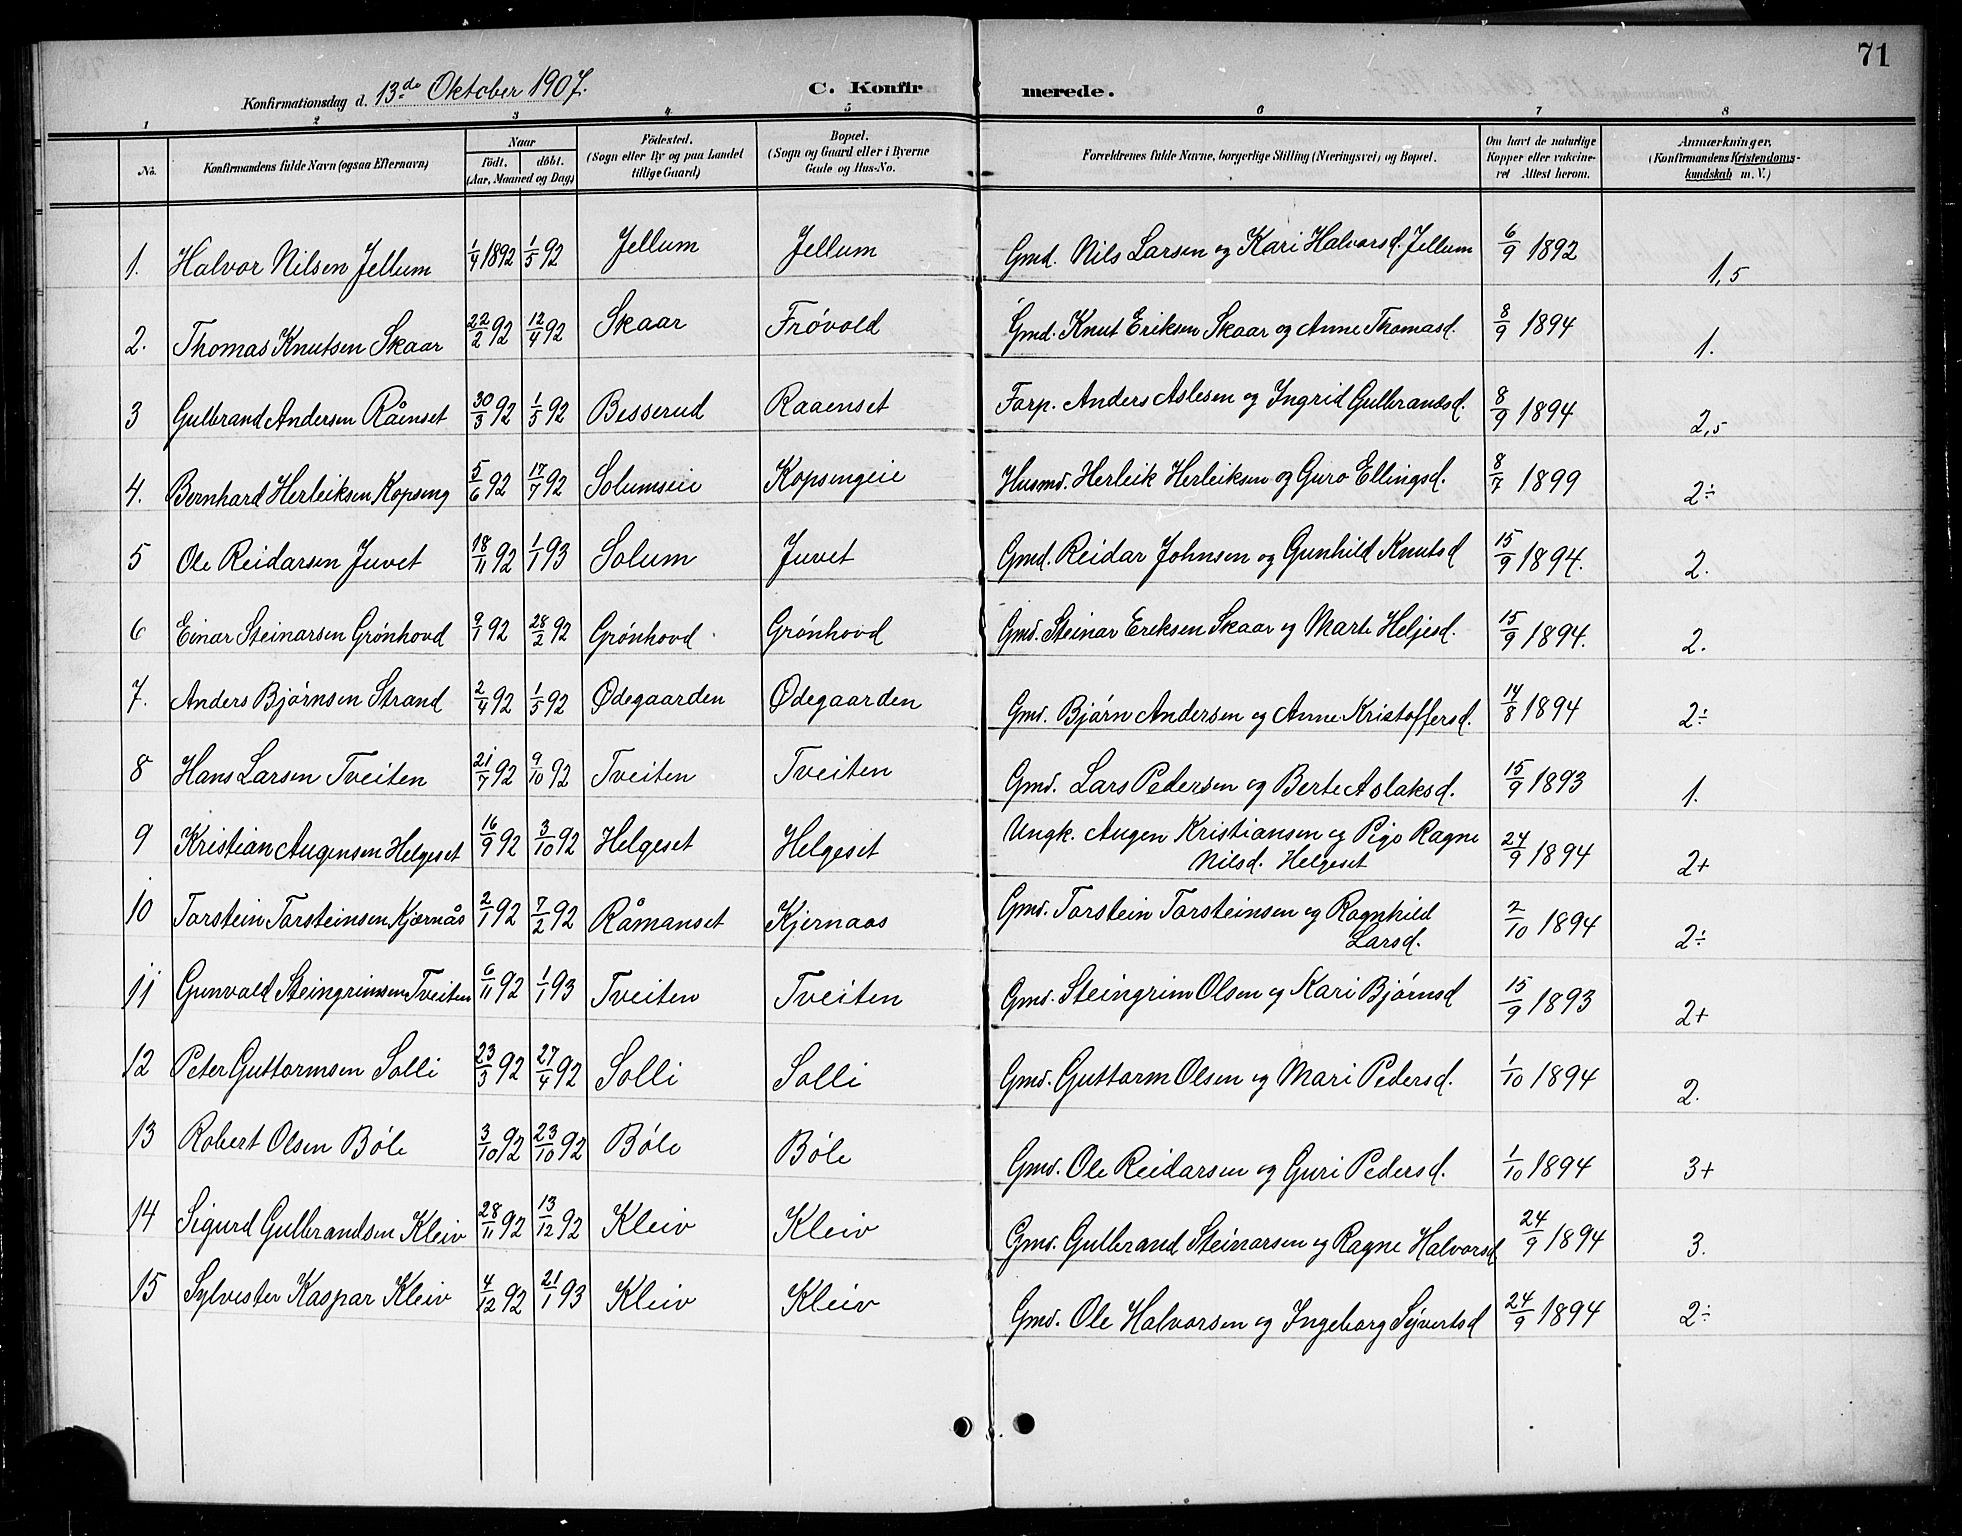 71
Konfirmationsdag d. 13de Oktober 1907. C. Konfirmerede.
1 2 3 4 5 6 7 8
No. Konfirmandens fulde Navn (ogsaa Efternavn) Naar födt. döbt. (Aar, Maaned og Dag) Födested. (Sogn eller By og paa Landet tillige Gaard) Bopæl. (Sogn og Gaard eller i Byerne Gade og Hus-No. Forældrenes fulde Navne, borgerlige Stilling (Næringsvei) og Bopæl. Om havt de naturlige Kopper eller vakcineret Attest herom. Anmærkninger, (Konfirmandens Kristendomskundskab m. V.)
1. Halvor Nilsen Jellum 1/4 1892 1/5 92 Jellum Jellum Gmd. Nils Larsen og Kari Halvorsd. Jellum 6/9 1892 1,5
2. Thomas Knutsen Skaar 22/2 92 12/4 92 Skaar Frövold Gmd. Knut Eriksen Skaar og Anne Thomasd. 8/9 1894 1.
3 Gulbrand Andersen Råenset 30/3 92 1/5 92 Besserud Raaenset Forp. Anders Aslesen og Ingrid Gulbrandsd. 8/9 1894 2,5
4. Bernhard Herleiksen Kopseng 5/6 92 17/7 92 Solumseie Kopsengeie Husmd. Herleik Herleiksen og Guro Ellingsd. 8/7 1899 2÷
5 Ole Reidarsen Juvet 18/11 92 1/1 93 Solum Juvet Gmd. Reidar Johnsen og Gunhild Knutsd 15/9 1894. 2.
6 Einar Steinarsen Grönhovd 9/1 92 28/2 92 Grönhovd Grönhovd Gmd. Steinar Eriksen Skaar og Marte Heljesd. 15/9 1894. 2.
7. Anders Björnsen Strand 2/4 92 1/5 92 Ødegaarden Ødegaarden Gmd. Björn Andersen og Anne Kristoffersd. 14/8 1894 2÷
8 Hans Larsen Tveiten 21/7 92 9/10 92 Tveiten Tveiten Gmd. Lars Pedersen og Berte Aslaksd. 15/9 1893 1.
9 Kristian Augensen Helgeset 16/9 92 3/10 92 Helgeset Helgeset Ungk. Augen Kristiansen og Pige Ragne
Nilsd. Helgeset 24/9 1894 2+
10 Torstein Torsteinsen Kjærnås 2/1 92 7/2 92 Råmanset Kjernaas Gmd. Torstein Torsteinsen og Ragnhild
Larsd. 2/10 1894 2÷
11 Gunvald Steingrimsen Tveiten 6/11 92 1/1 93 Tveiten Tveiten Gmd. Steingrim Olsen og Kari Björnsd 15/9 1893 2+
12 Peter Guttormsen Solli 23/3 92 27/4 92 Solli Solli Gmd. Guttorm Olsen og Mari Pedersd. 1/10 1894 2.
13 Robert Olsen Böle 3/10 92 23/10 92 Böle Böle Gmd. Ole Reidarsen og Guri Pedersd. 1/10 1894 3+
14 Sigurd Gulbrandsen Kleiv 28/11 92 13/12 92 Kleiv Kleiv Gmd. Gulbrand Steinarsen og Ragne Halvorsd 24/9 1894 3.
15 Sylvester Kaspar Kleiv 4/12 92 21/1 93 Kleiv Kleiv Gmd. Ole Halvorsen og Ingeborg Syvertsd 24/9 1894 2÷